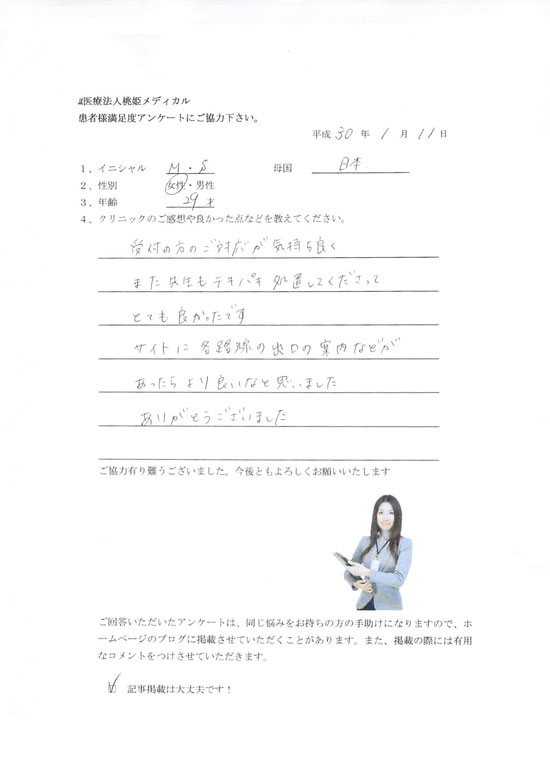 医療法人桃姫メディカル
患者様満足度アンケートにご協力下さい。
平成 30 年 1 月 11 日
1、イニシャル M・S 母国 日本
2、性別 女性・男性
3、年齢 29才
4、クリニックのご感想や良かった点などを教えてください。
受付の方のご対応が気持ち良く
また先生もテキパキ処置してくださって
とても良かったです
サイトに各路線の出口の案内などが
あったらより良いなと思いました
ありがとうございました
ご協力有り難うございました。今後ともよろしくお願いいたします
ご回答いただいたアンケートは、同じ悩みをお持ちの方の手助けになりますので、ホ
ームページのブログに掲載させていただくことがあります。また、掲載の際には有用
なコメントをつけさせていただきます。
記事掲載は大丈夫です！